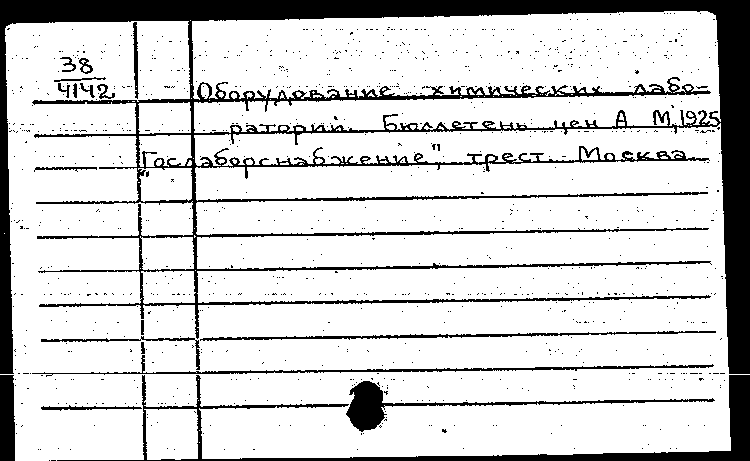 38
4142
Оборудование химических лабо=
раторий. Бюллетень цен А М, 1925
"Гослаборснабжение", трест. Москва.